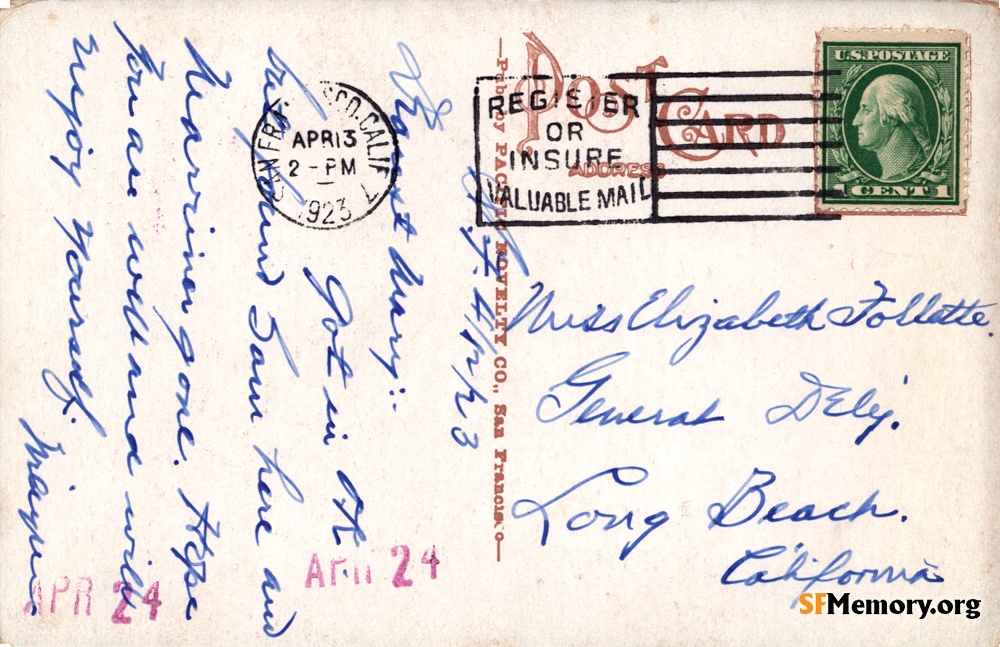 POST CARD
ADDRESS
U.S. POSTAGE
1 CENT 1
SAN FRA SCO, CALIF.
APR 13
2 - PM
1923
REGISTER
OR
INSURE
VALUABLE MAIL
—Pub. by PACIFIC NOVELTY CO., San Francisco—
S.F. 4/12/23
Mary:-
Got in OK
but found Sam here and
Marriner gone. Hope
you are well and will
enjoy yourself.
Miss Elizabeth Follette.
General Dely.
Long Beach.
California
APR 24
APR 24
SFMemory.org